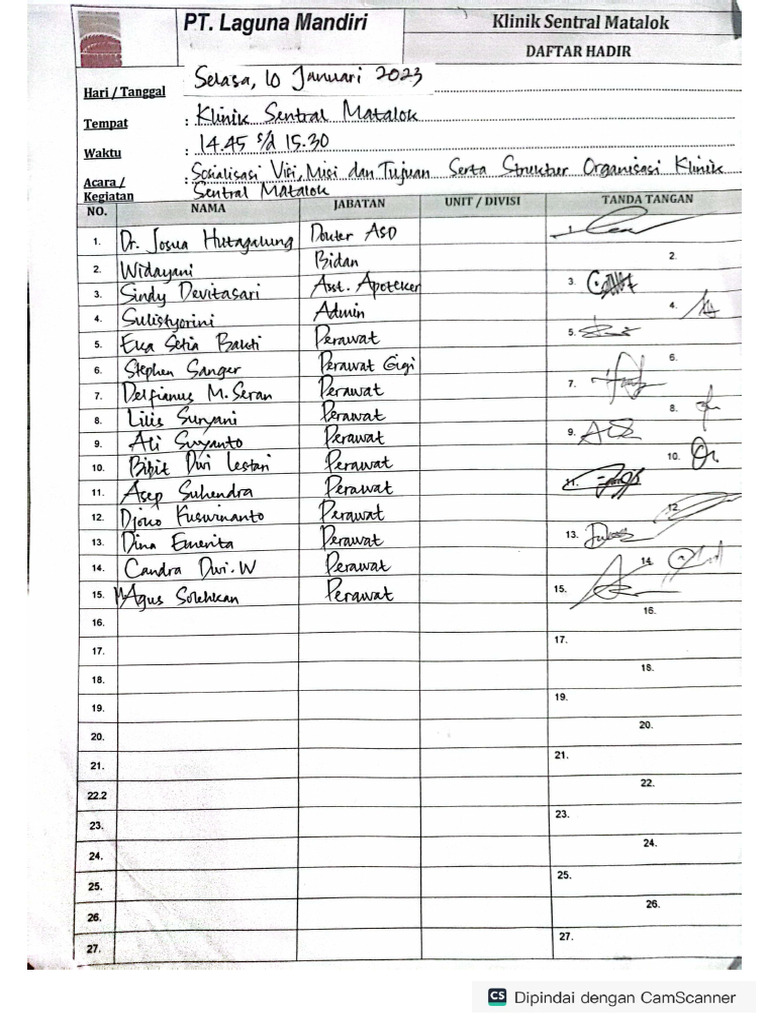 PT. Laguna Mandiri
Klinik Sentral Matalok
DAFTAR HADIR
Hari / Tanggal Selasa, 10 Januari 2023
Tempat : Klinik Sentral Matalok
Waktu : 14.45 s/d 15.30
Acara / Kegiatan : Sosialisasi Visi, Misi dan Tujuan Serta Struktur Organisasi Klinik
Sentral Matalok
NO. NAMA JABATAN UNIT / DIVISI TANDA TANGAN
1. Dr. Josua Hutagalung Dokter ASO 1.
2. Widayani Bidan 2.
3. Sindy Devitasari Asst. Apoteker 3.
4. Sulistyorini Admin 4.
5. Eka Setia Bakti Perawat 5.
6. Stephen Sanger Perawat Gigi 6.
7. Delfianus M. Seran Perawat 7.
8. Lilis Suryani Perawat 8.
9. Ali Suyanto Perawat 9.
10. Bibit Dwi Lestari Perawat 10.
11. Asep Suhendra Perawat 11.
12. Djoko Kuswinanto Perawat 12.
13. Dina Emerita Perawat 13.
14. Candra Dwi. W Perawat 14.
15. M Agus Solehkan Perawat 15.
16. 16.
17. 17.
18. 18.
19. 19.
20. 20.
21. 21.
22.2 22.
23. 23.
24. 24.
25. 25.
26. 26.
27. 27.
CS Dipindai dengan CamScanner